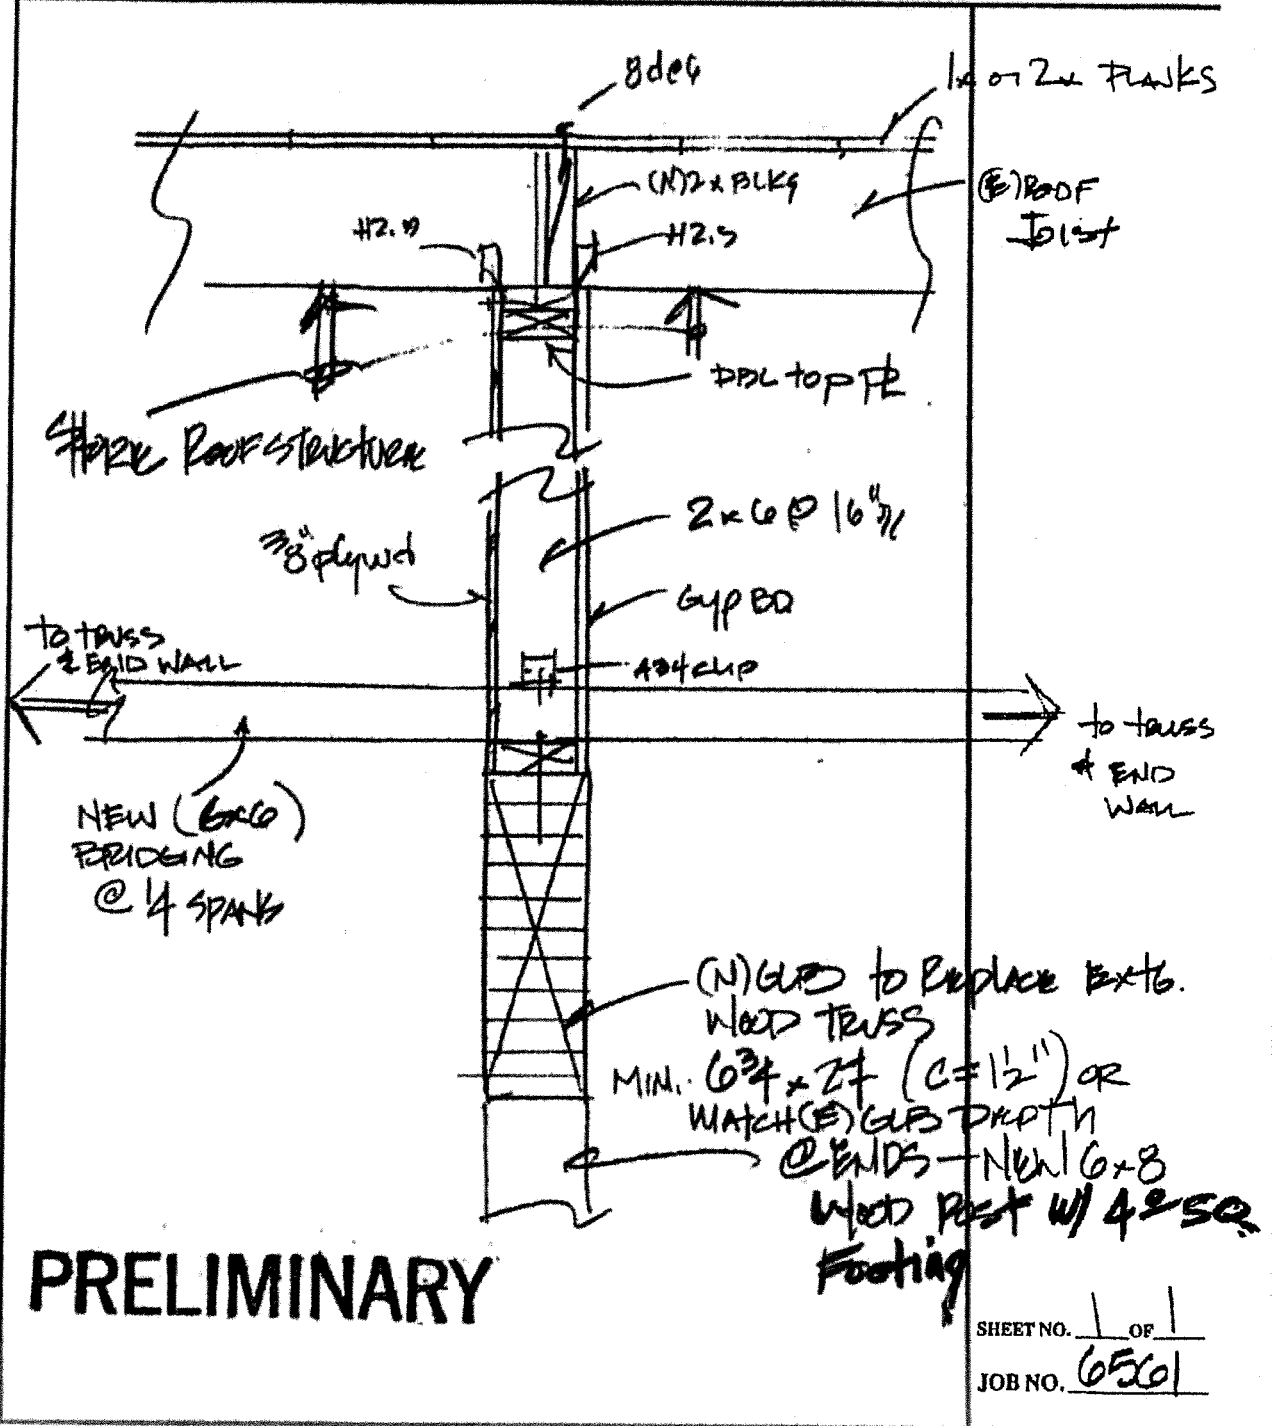 8d@6
1x or 2x PLANKS
(N)2x BLKG
(E) ROOF
JOIST
H2.5
H2.5
DBL TOP PL
SHORE ROOF STRUCTURE
2x6 @ 16"
3/8" plywd
GYP BD
TO TRUSS
& END WALL
A34 CLIP
TO TRUSS
& END
WALL
NEW (6x6)
BRIDGING
@ 1/4 SPANS
(N) GLB TO REPLACE EXTG.
WOOD TRUSS
MIN. 6 3/4 x 27 (C=1 1/2") OR
MATCH (E) GLB DEPTH
@ENDS - NEW 6x8
WOOD POST W/ 4º SQ.
Footing
PRELIMINARY
SHEET NO. 1 OF 1
JOB NO. 6561